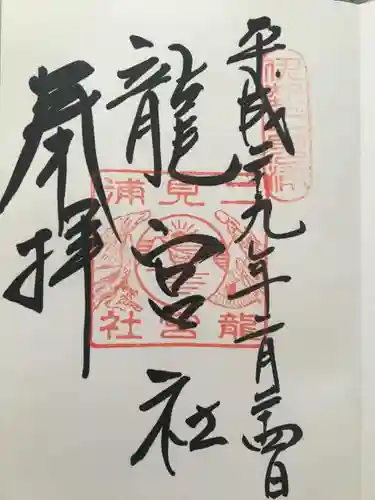 平成二十九年二月二十四日
龍宮社
奉拝
二見浦
龍宮社